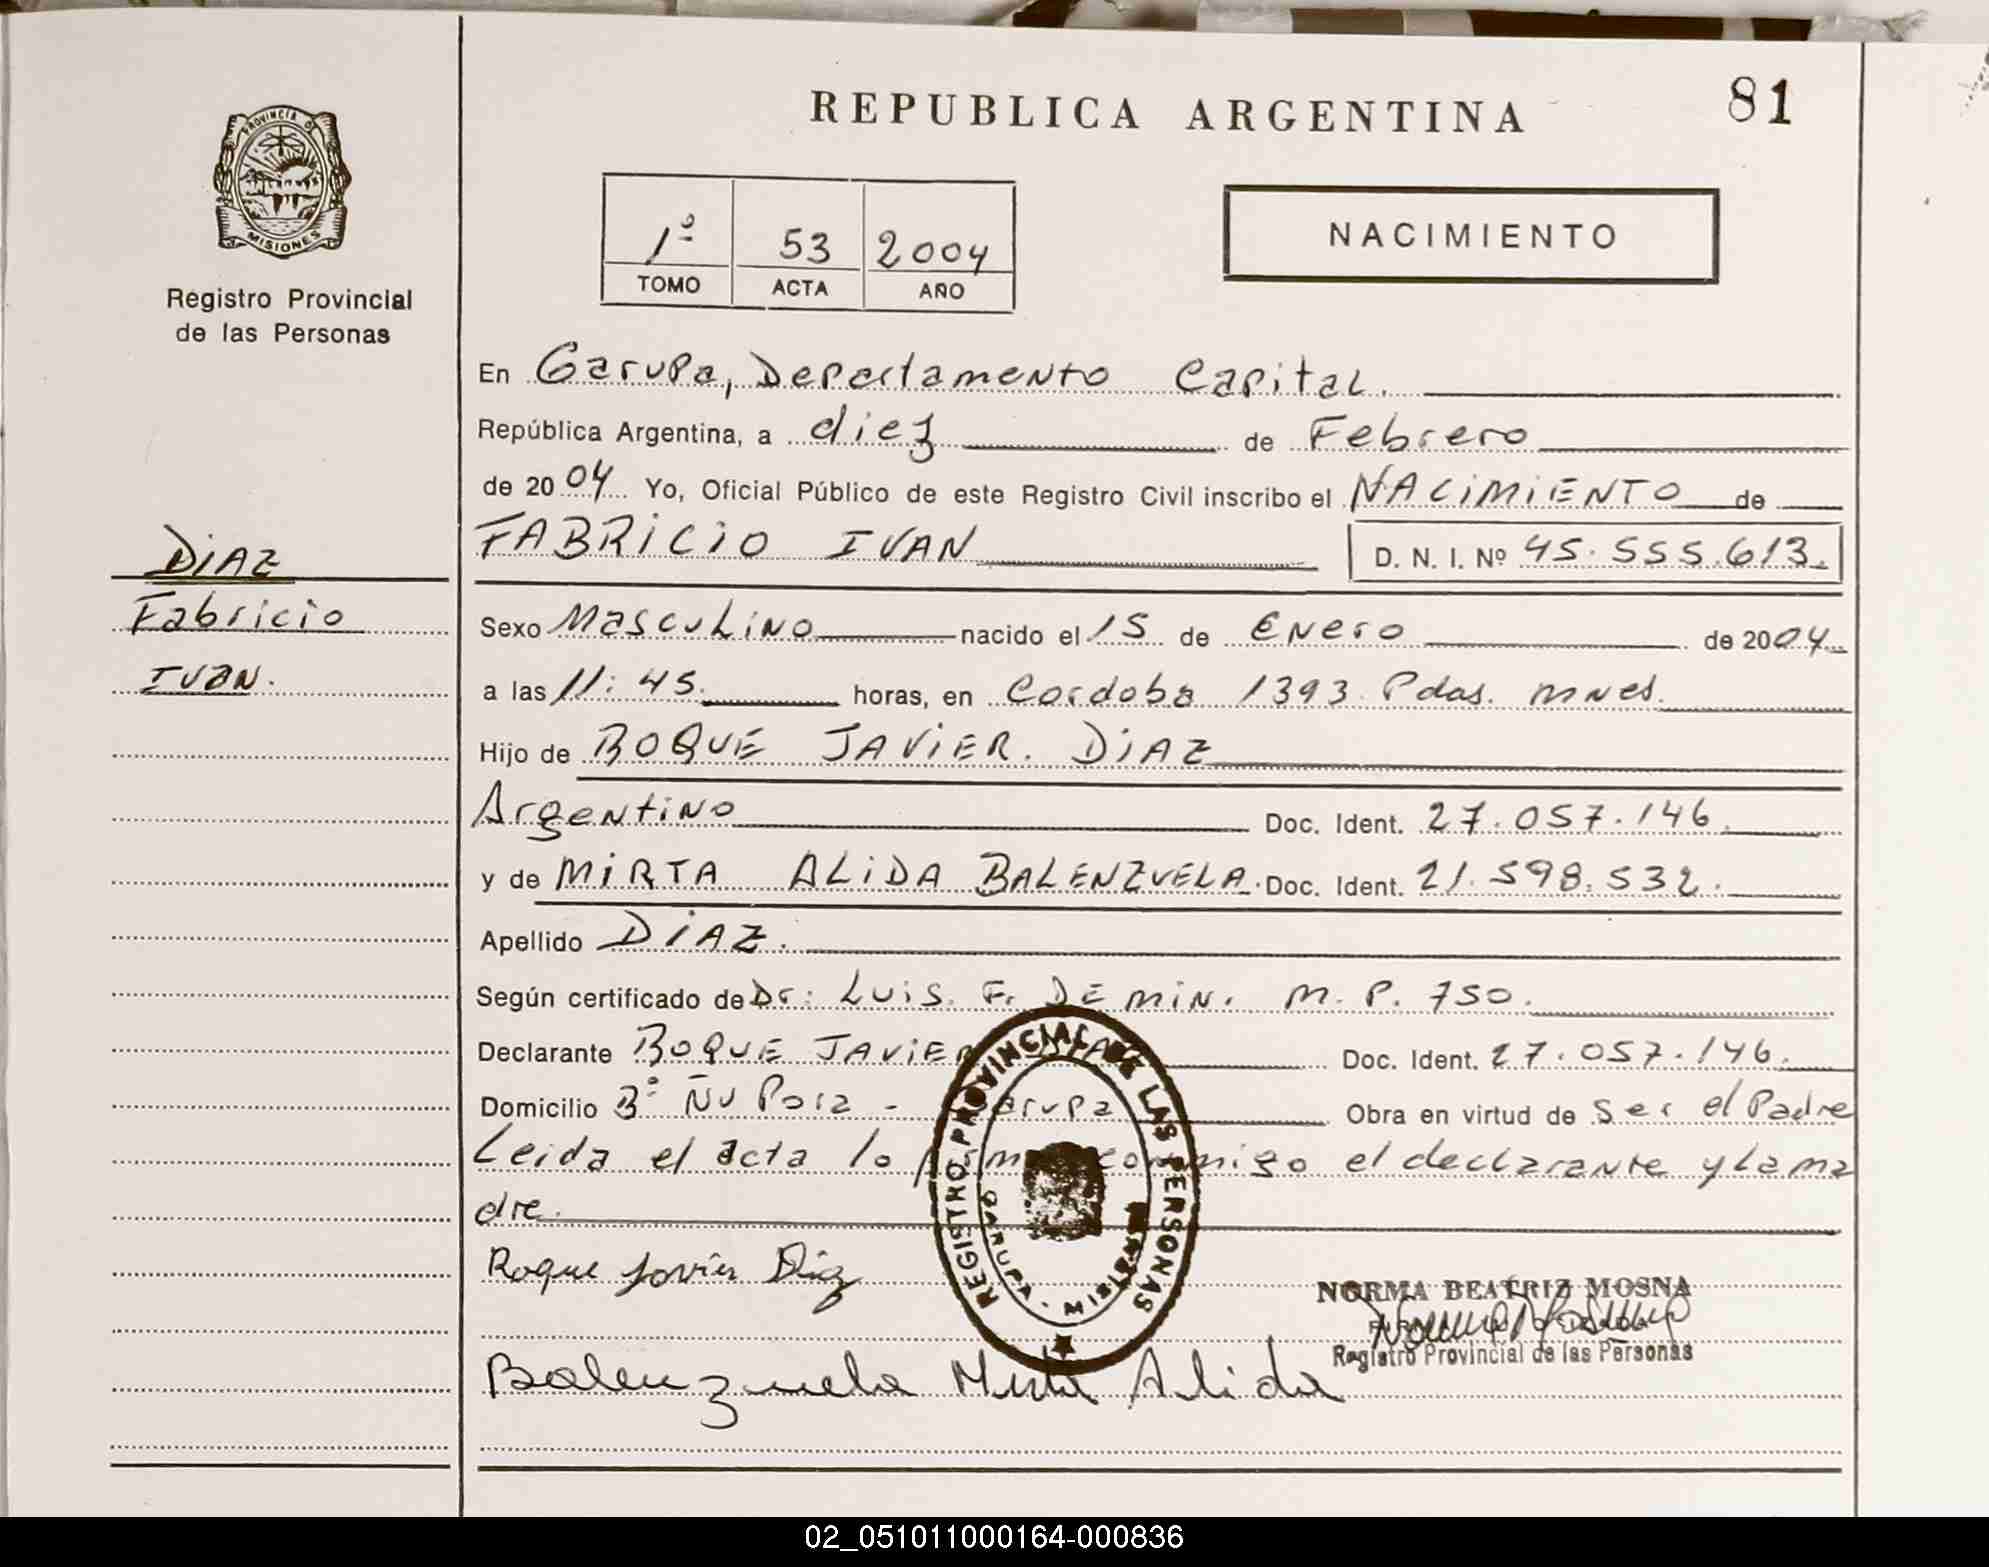 REPUBLICA ARGENTINA
81
PROVINCIA DE
MISIONES
Registro Provincial
de las Personas
1º 53 2004
TOMO ACTA AÑO
NACIMIENTO
En Garupa, Departamento Capital.
República Argentina, a diez de Febrero
de 2004 Yo, Oficial Público de este Registro Civil inscribo el NACIMIENTO de
FABRICIO IVAN D. N. I. Nº 45.555.613.
DIAZ
Fabricio
IVAN.
Sexo Masculino nacido el 15 de Enero de 2004
a las 11:45. horas, en Cordoba 1393 Pdas. mnes.
Hijo de ROQUE JAVIER. DIAZ
Argentino Doc. Ident. 27.057.146.
y de MIRTA ALIDA BALENZUELA. Doc. Ident. 21.598.532.
Apellido DIAZ.
Según certificado de Dr: Luis. F. DE MIN. M. P. 750.
Declarante ROQUE JAVIER DIAZ Doc. Ident. 27.057.146.
Domicilio Bº Ñu Pora - Garupa Obra en virtud de Ser el Padre
Leida el acta lo firman conmigo el declarante y la ma
dre.
Roque Javier Diaz
REGISTRO PROVINCIAL DE LAS PERSONAS
GARUPA - MISIONES
NORMA BEATRIZ MOSNA
Registro Provincial de las Personas
Balenzuela Mirta Alida
02_051011000164-000836